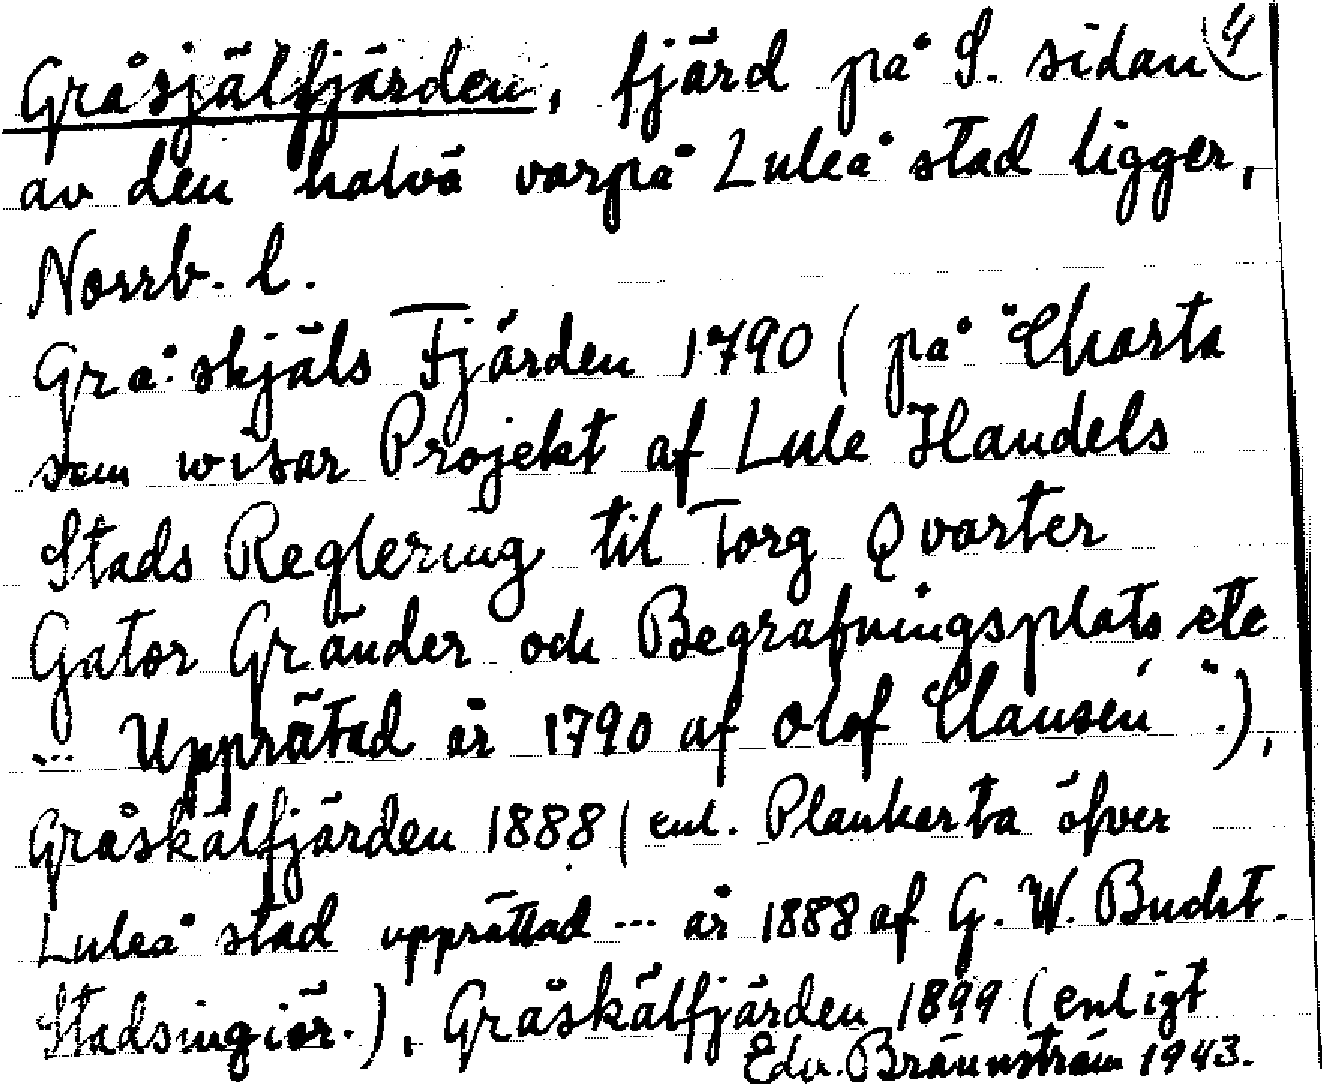 Gråsjälfjärden, fjärd på S. sidan
av den halvö varpå Luleå stad ligger,
Norrb. l.
Grå skjäls Fjärden 1790 ( på "Charta
som wisar Projekt af Lule Handels
Stads Reglering til Torg Qvarter
Gator Gränder och Begrafningsplats etc
... Upprätad år 1790 af Olof Clausén".),
Gråskälfjärden 1888 ( enl. Plankarta öfver
Luleå stad upprättad --- år 1888 af G. W. Bucht.
Stadsingiör.). Gråskälfjärden 1899 ( enligt
Edv. Brännström 1943.